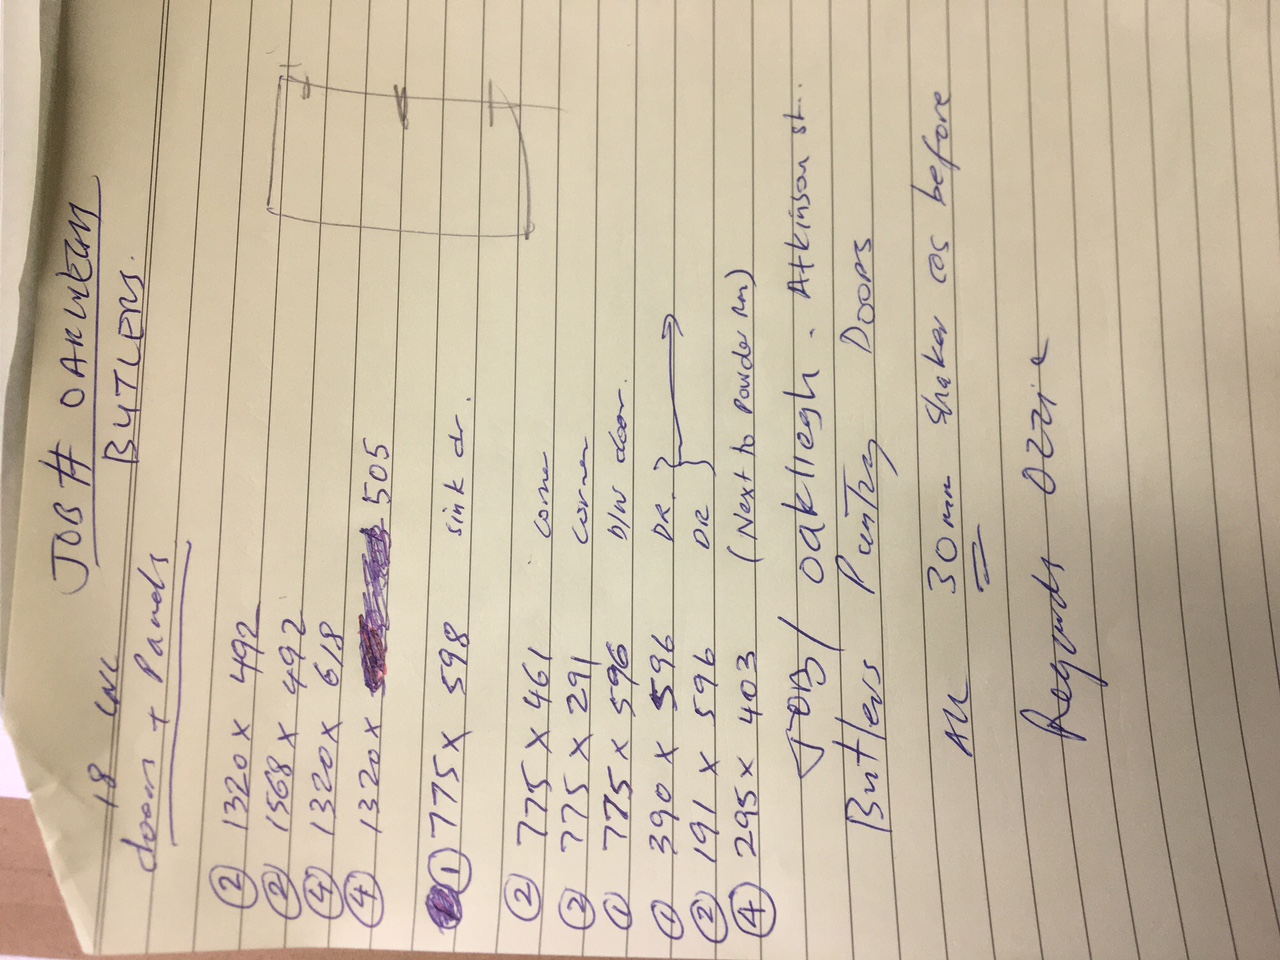 JOB # OAKLEIGH
BUTLERS.
18 WL
doors + Panels
② 1320 x 492
② 1568 x 492
④ 1320 x 618
④ 1320 x 505
① 775 x 598 sink dr.
② 775 x 461 corner
② 775 x 291 corner
① 775 x 596 b/w door.
① 390 x 596 DR.
② 191 x 596 DR
④ 295 x 403 (Next to Powder Rm)
JOB/ Oakliegh. Atkinson st..
Butlers Pantry Doors
All 30mm Shaker as before
Regards Ozzie